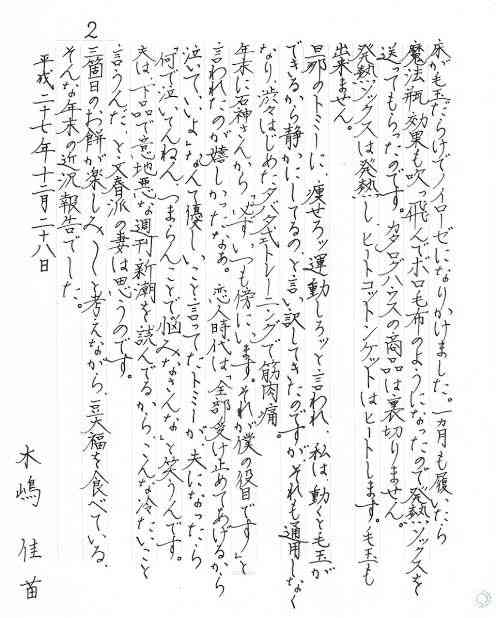 2
床が毛玉だらけでノイローゼになりかけました。一ヵ月も履いたら
魔法瓶効果も吹っ飛んでボロ毛布のようになったので発熱ソックスを
送ってもらったのです。カタログハウスの商品は裏切りません。
発熱ソックスは発熱し、ヒートコットンケットはヒートします。毛玉も
出来ません。
旦那のトミーに、痩せろッ運動しろッと言われ、私は動くと毛玉が
できるから静かにしてるのと言い訳してきたのですがそれも通用しなく
なり、渋々はじめたタバタ式トレーニングで筋肉痛。
年末に若神さんから「いつも傍にいます。それが僕の役目です」と
言われたのが嬉しかったなあ。恋人時代は「全部受け止めてあげるから
泣いていいよ」なんて優しいこと言ってたトミーが夫になったら
「何で泣いてんねん、つまらんことで悩みなさんな」と笑うんです。
夫は下品で意地悪な週刊新潮を読んでるから、こんな冷たいこと
言うんだ、と文春派の妻は思うのです。
三箇日のお餅が楽しみ〱と考えながら、豆大福を食べている、
そんな年末の近況報告でした。
平成二十七年十二月二十八日
木嶋 佳苗